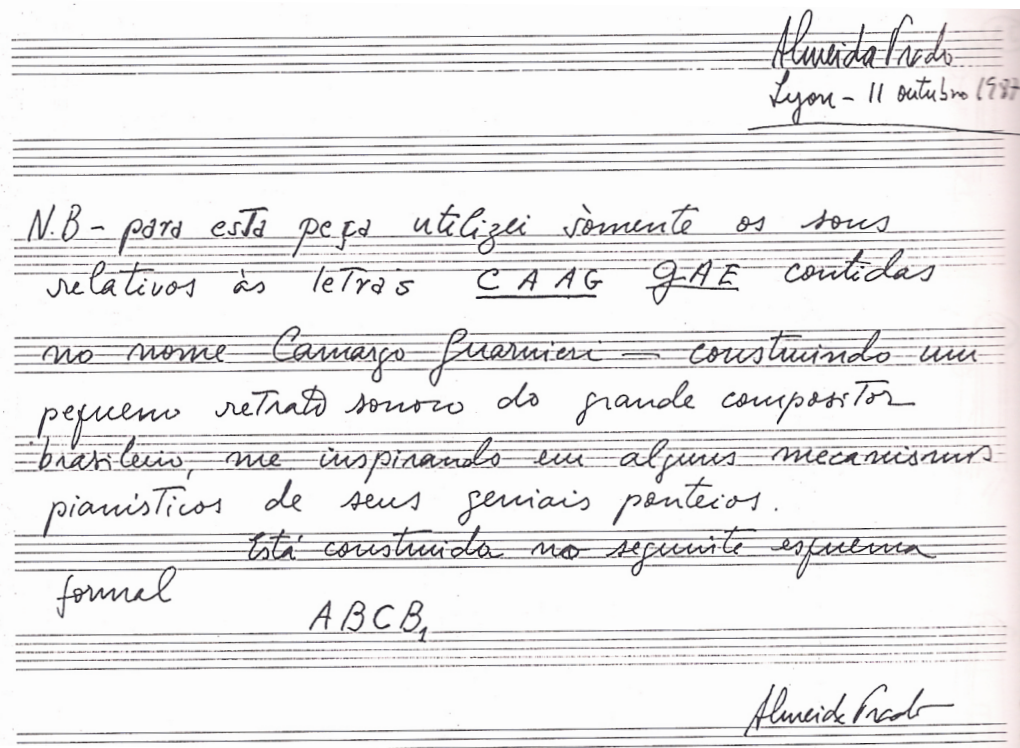 Almeida Prado
Lyon - 11 outubro 1987
N.B - para esta peça utilizei sòmente os sons
relativos às letras CAAG GAE contidas
no nome Camargo Guarnieri — construindo um
pequeno retrato sonoro do grande compositor
brasileiro, me inspirando em alguns mecanismos
pianísticos de seus geniais ponteios.
Está construida no seguinte esquema
formal
ABCB1
Almeida Prado